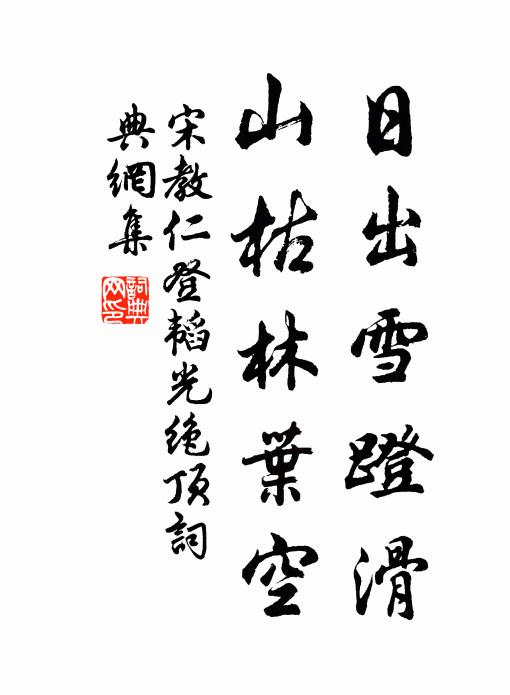 日出雪蹬滑
山枯林葉空
宋教仁登韜光絶頂詞
典網集
詞典
网印